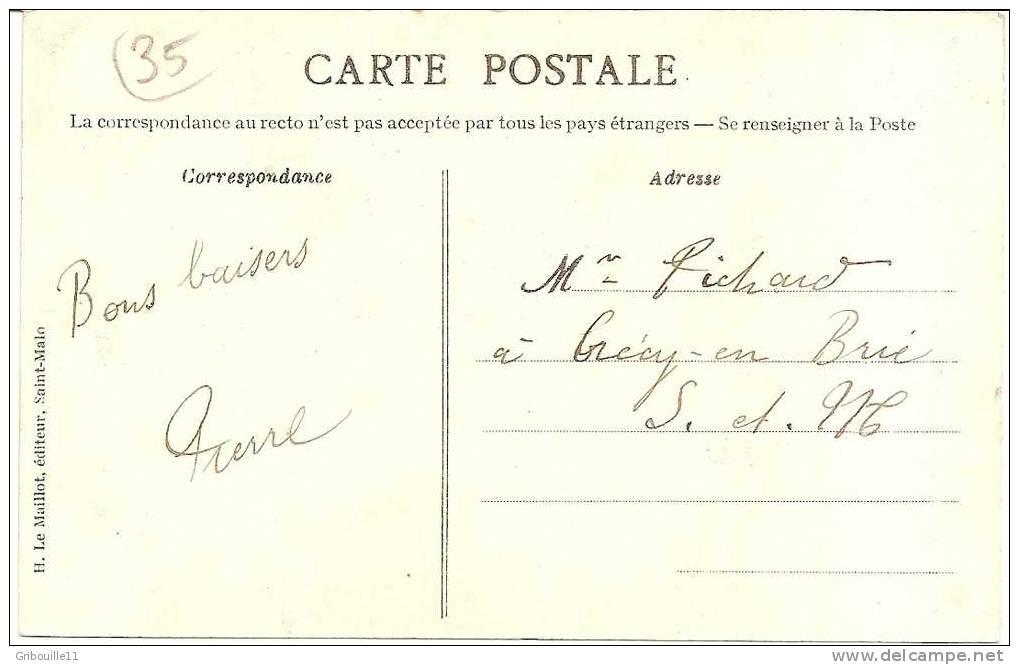 35
CARTE POSTALE
La correspondance au recto n'est pas acceptée par tous les pays étrangers — Se renseigner à la Poste
Correspondance
Bons baisers
Pierre
H. Le Maillot, éditeur, Saint-Malo
Adresse
Mr Pichard
à Crécy-en Brie
S. et. M
Gribouille11
delcampe.net